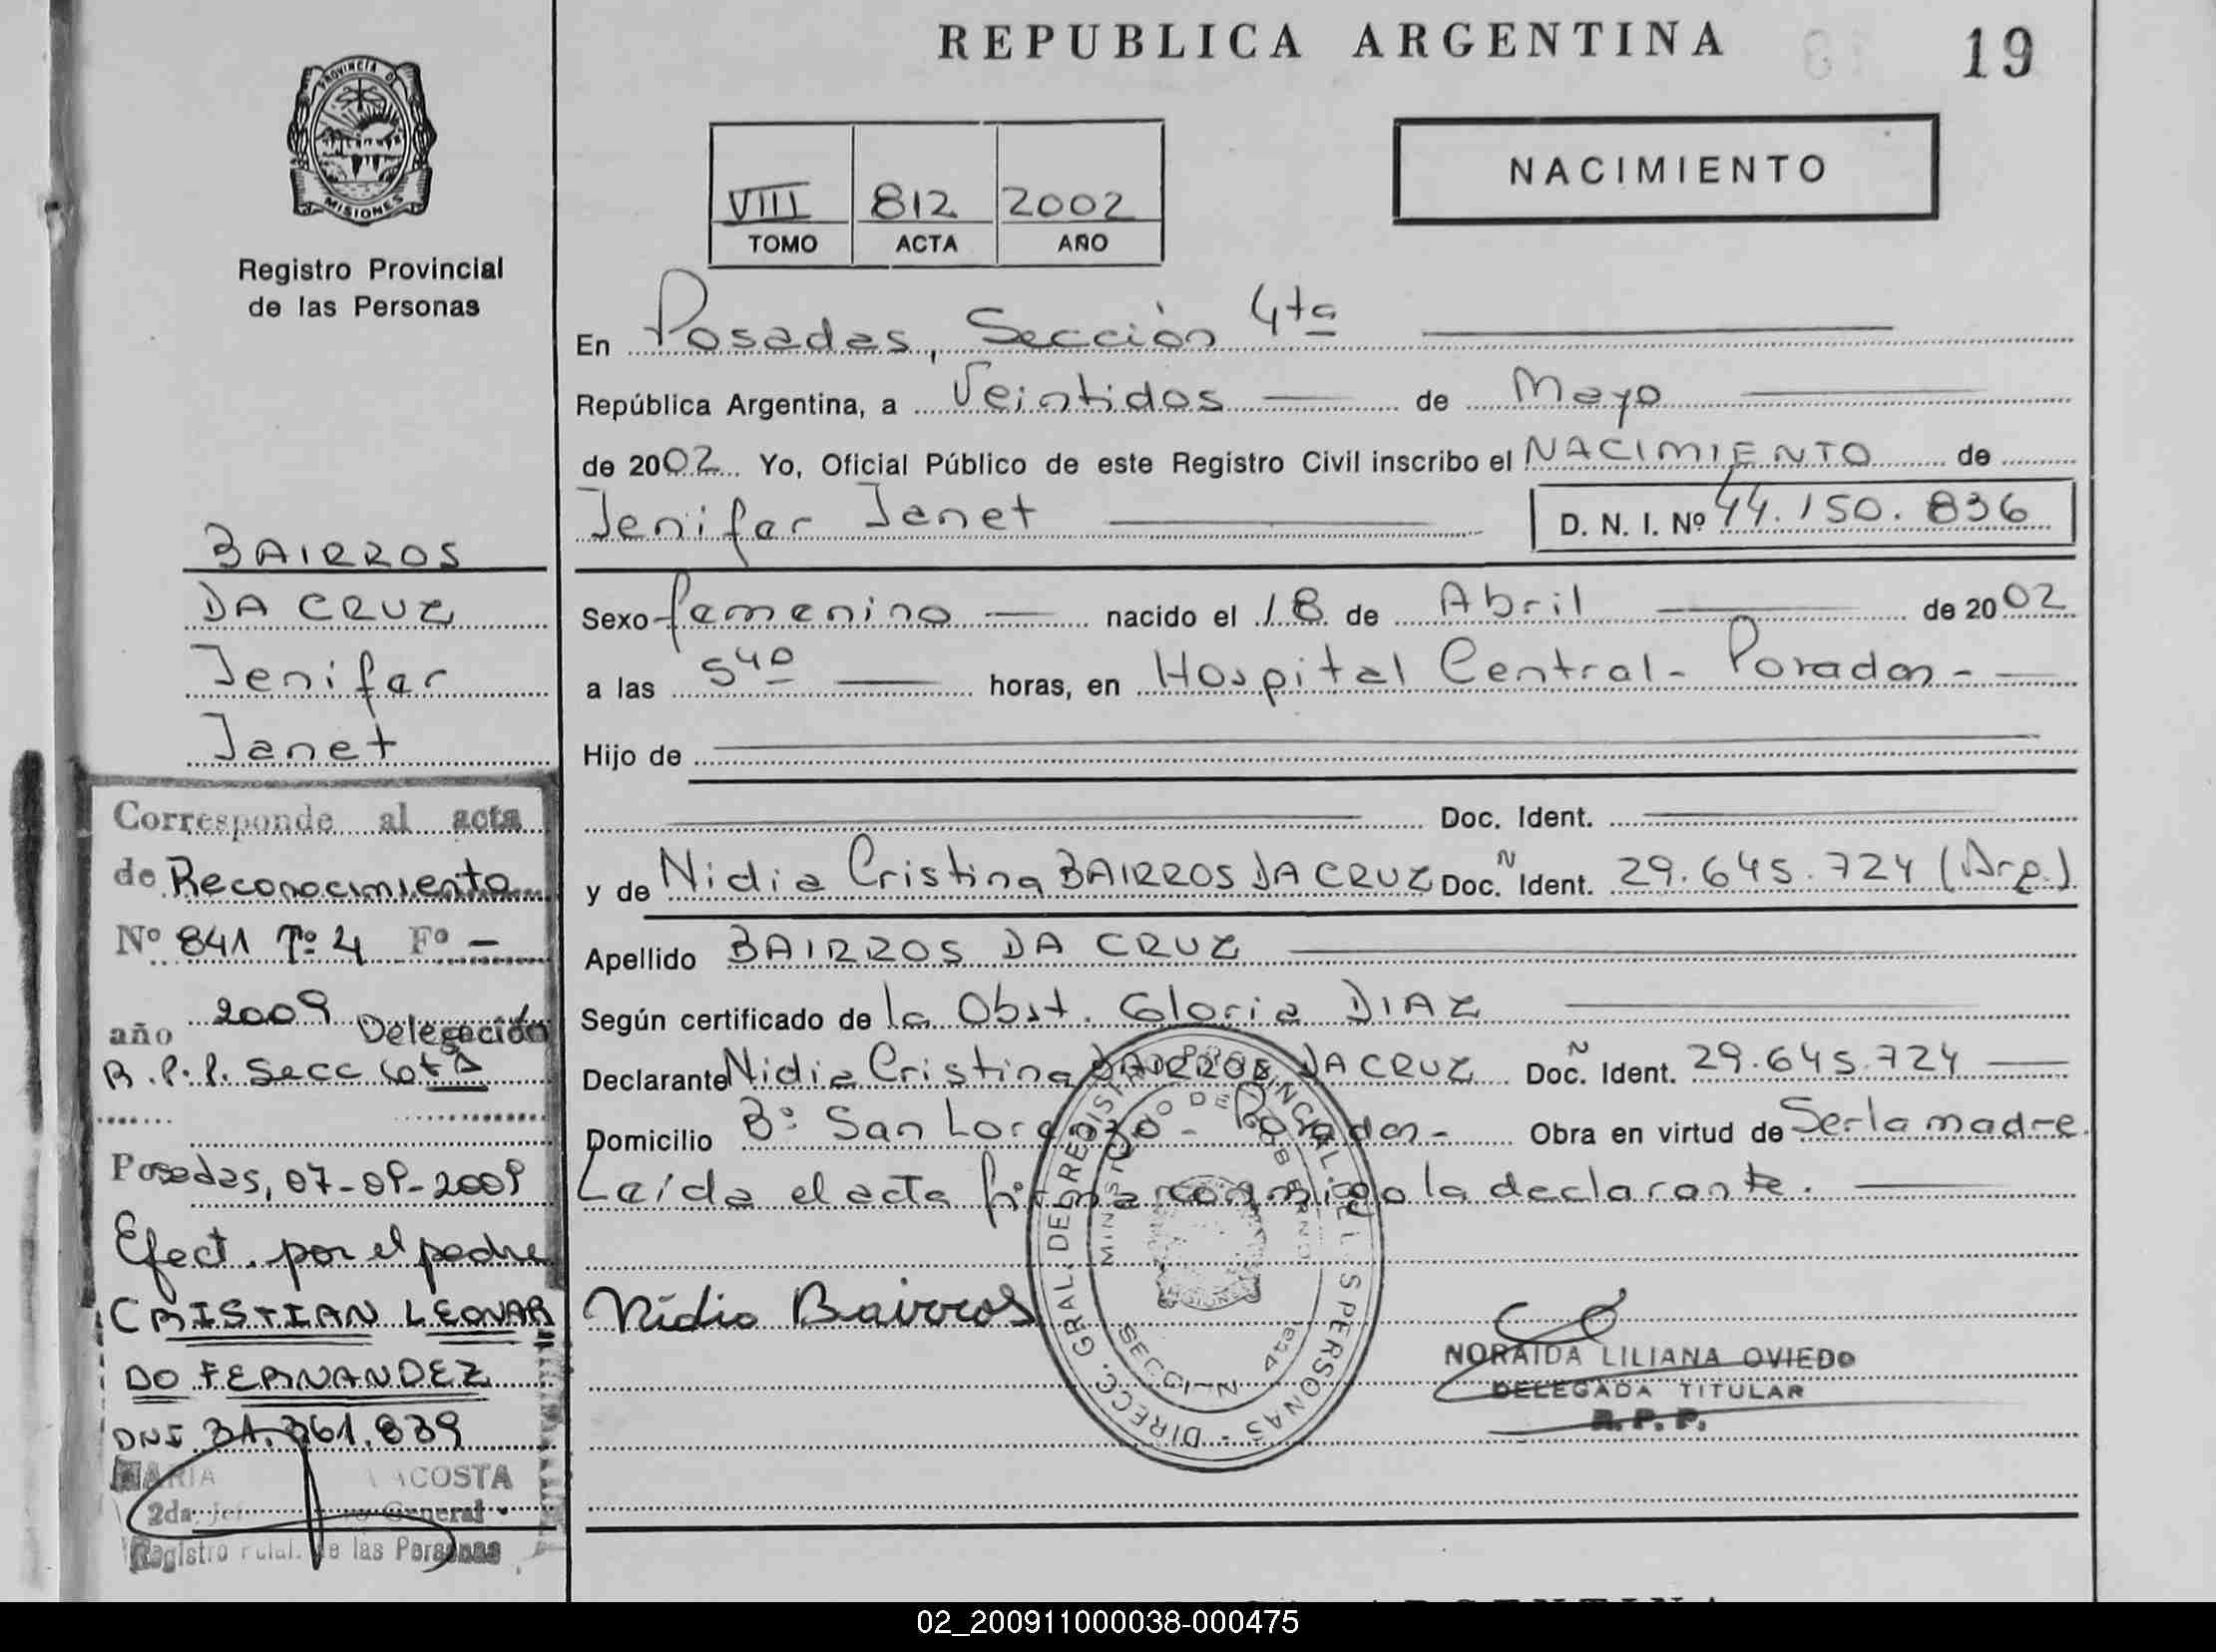 REPUBLICA ARGENTINA
19
PROVINCIA DE
MISIONES
Registro Provincial
de las Personas
NACIMIENTO
VIII 812 2002
TOMO ACTA AÑO
En Posadas, Sección 4ta
República Argentina, a Veintidos de Mayo
de 2002 Yo, Oficial Público de este Registro Civil inscribo el NACIMIENTO de
Jenifar Janet D. N. I. Nº 44.150.836
Sexo femenino nacido el 18 de Abril de 2002
a las 5 40 horas, en Hospital Central - Posadas -
Hijo de
Doc. Ident.
y de Nidia Cristina BAIRROS DA CRUZ Doc. N Ident. 29.645.724 (Arg.)
Apellido BAIRROS DA CRUZ
Según certificado de la Obst. Gloria DIAZ
Declarante Nidia Cristina BAIRROS DA CRUZ Doc. N Ident. 29.645.724
Domicilio Bº San Lorenzo - Posadas - Obra en virtud de Ser la madre.
Leída el acta firma conmigo la declarante.
Nidia Bairros
NORAIDA LILIANA OVIEDO
DELEGADA TITULAR
R. P. P.
DIRECC. GRAL. DEL REGISTRO PROVINCIAL DE L S PERSONAS -
MINISTERIO DE GOBIERNO
SECCI N 4ta
BAIRROS
DA CRUZ
Jenifar
Janet
Corresponde al acta
de Reconocimiento
Nº 841 Tº 4 Fº -
año 2009 Delegación
R.P.P. Secc 6ta
Posadas, 07-09-2009
Efect. por el padre
CRISTIAN LEONAR
DO FERNANDEZ
DNI 31.361.839
MARIA ACOSTA
2da. General
Registro Pcial. de las Personas
ARGENTINA
02_200911000038-000475